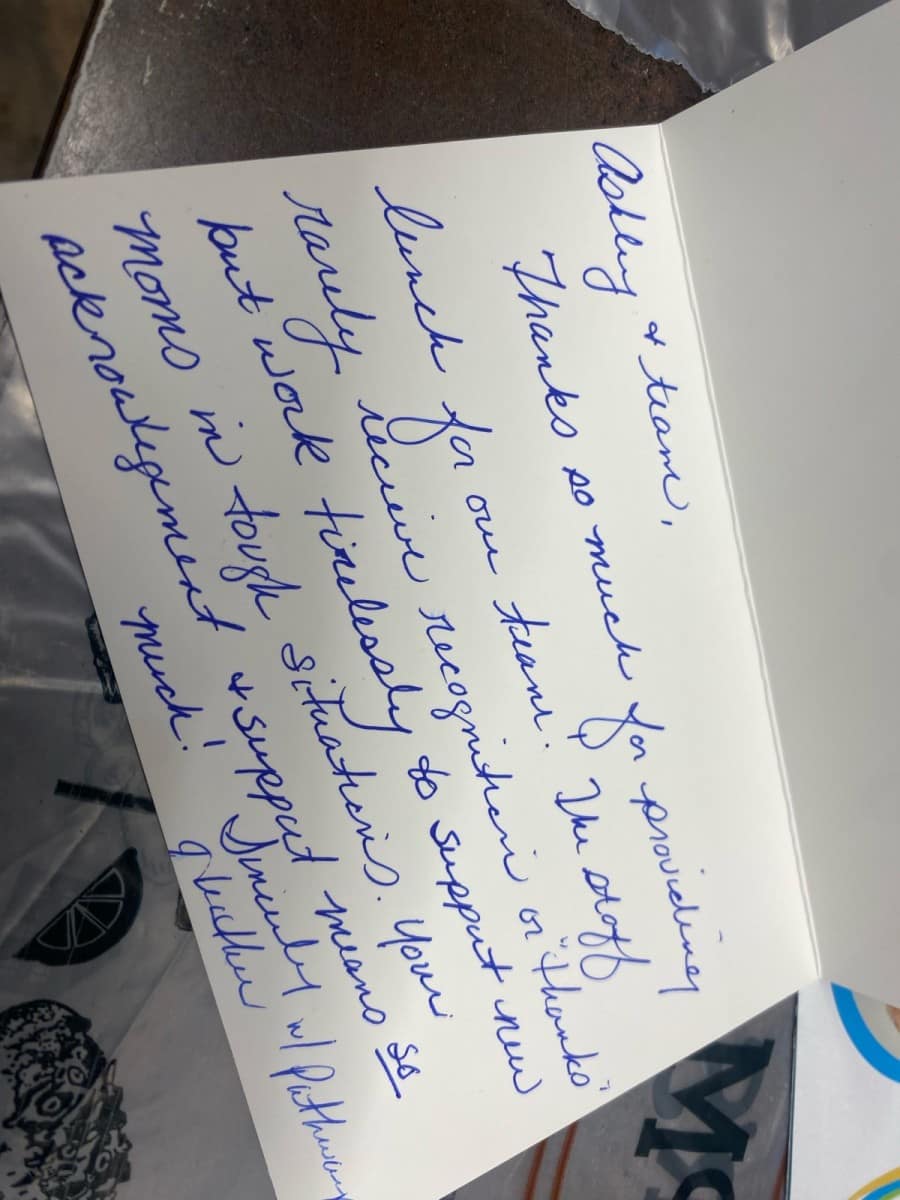 Ashley & team,
Thanks so much for providing
lunch for our team. The staff
rarely receive recognition or "thanks"
but work tirelessly to support new
moms in tough situations. Your
acknowledgement & support means so
much!
Sincerely,
Heather w/ Pathways
M